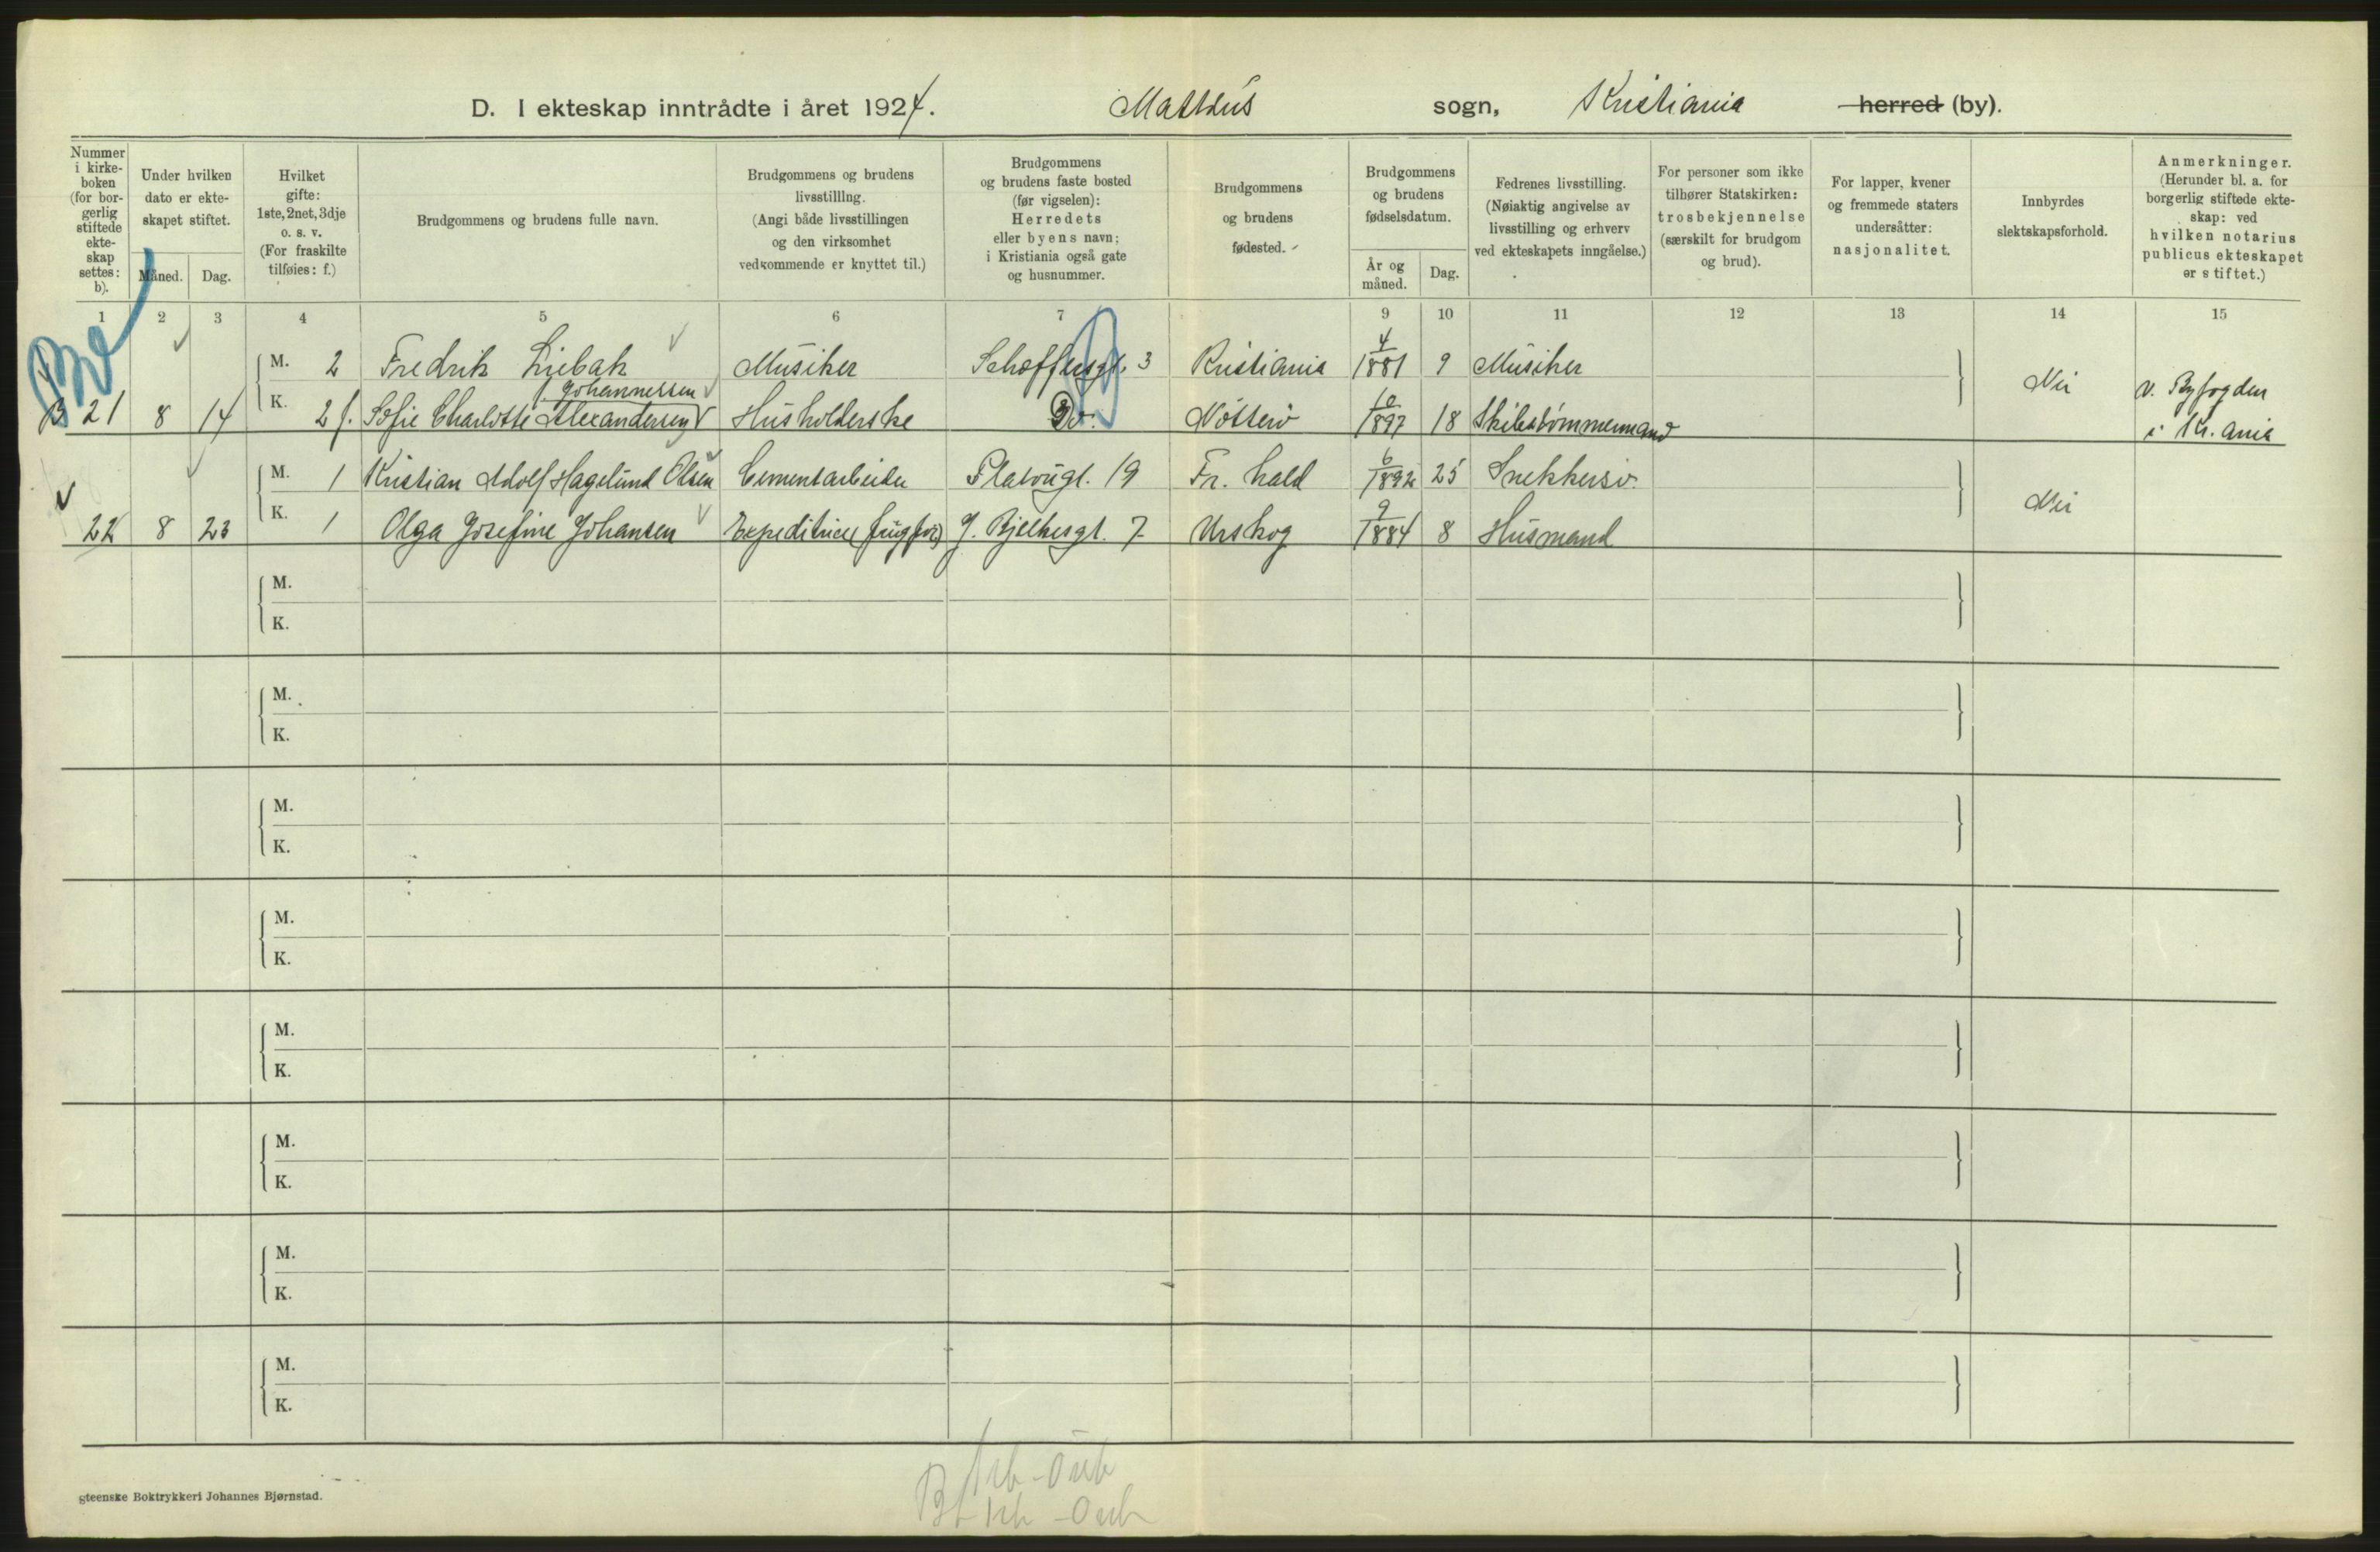 D. I ekteskap inntrådte i året 1924. Matteus sogn, Kristiania herred (by).
Nummer i kirke-boken (for bor-gerlig stiftede ekte-skap settes: b).
Under hvilken dato er ekte-skapet stiftet.
Måned. Dag.
Hvilket gifte: 1ste, 2net, 3dje o. s. v. (For fraskilte tilføies: f.)
Brudgommens og brudens fulle navn.
Brudgommens og brudens livsstilllng. (Angi både livsstillingen og den virksomhet vedkommende er knyttet til.)
Brudgommens og brudens faste bosted (før vigselen): Herredets eller byens navn; i Kristiania også gate og husnummer.
Brudgommens og brudens fødested.
Brudgommens og brudens fødselsdatum.
År og måned. Dag.
Fedrenes livsstilling. (Nøiaktig angivelse av livsstilling og erhverv ved ekteskapets inngåelse.)
For personer som ikke tilhører Statskirken: trosbekjennelse (særskilt for brudgom og brud).
For lapper, kvener og fremmede staters undersåtter: nasjonalitet.
Innbyrdes slektskapsforhold.
Anmerkninger. (Herunder bl. a. for borgerlig stiftede ekte-skap: ved hvilken notarius publicus ekteskapet er stiftet.)
1 2 3 4 5 6 7 8 9 10 11 12 13 14 15
M. 2 Fredrik Liebak Musiker Schøffersgt. 3 Kristiania 4/1881 9 Musiker
Johannessen
B 21 8 14 K. 2 f. Sofie Charlotte Alexandersen Husholderske Do. Nøtterø 10/1897 18 Skibstømmermand Nei v. Byfogden
i Kr.ania
M. 1 Kristian Adolf Hagelund Olsen Cementarbeider Platougt. 19 Fr. hald 6/1892 25 Snekkersv.
22 8 23 K. 1 Olga Josefine Johansen Expeditrice J. Bjelkesgt. 7 Urskog 9/1884 8 Husmand Nei
M.
K.
M.
K.
M.
K.
M.
K.
M.
K.
M.
K.
M.
K.
M.
K.
gteenske Boktrykkeri Johannes Bjørnstad.